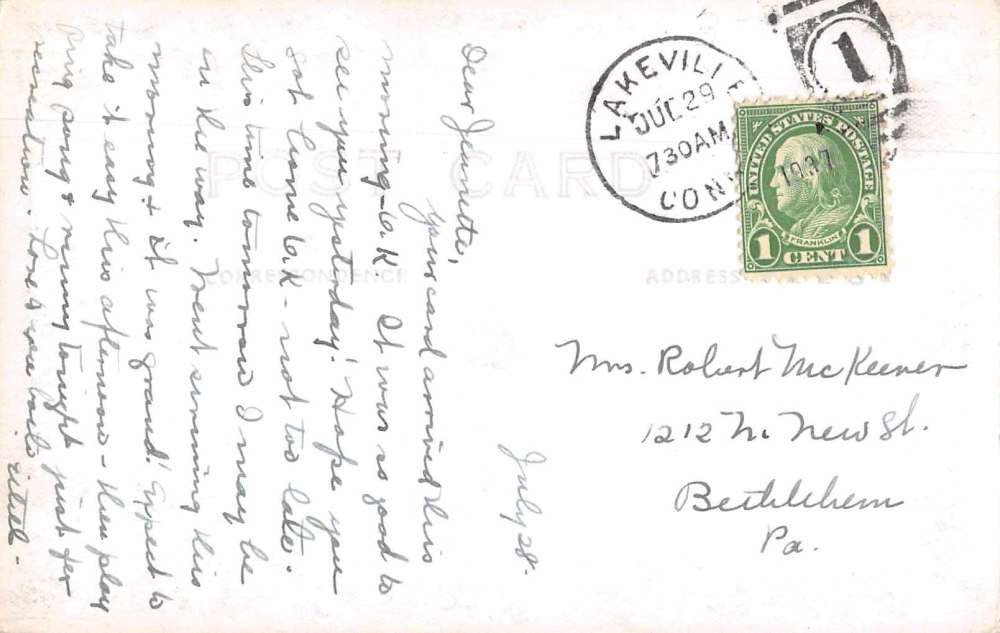 July 28.
Dear Jeanette,
Your card arrived this
morning - O.K. It was so good to
see you yesterday! Hope you
got home O.K - not too late.
This time tomorrow I may be
on the way. Went swimming this
morning & it was grand! Expect to
take it easy this afternoon - then play
ping pong & rummy tonight just for
relaxation. Love & see both
POST CARD
CORRESPONDENCE
ADDRESS
LAKEVILLE
JUL 29
730AM
CONN
1937
1
UNITED STATES POSTAGE
FRANKLIN
1 CENT 1
Mrs. Robert McKeever
1212 N. New St.
Bethlehem
Pa.